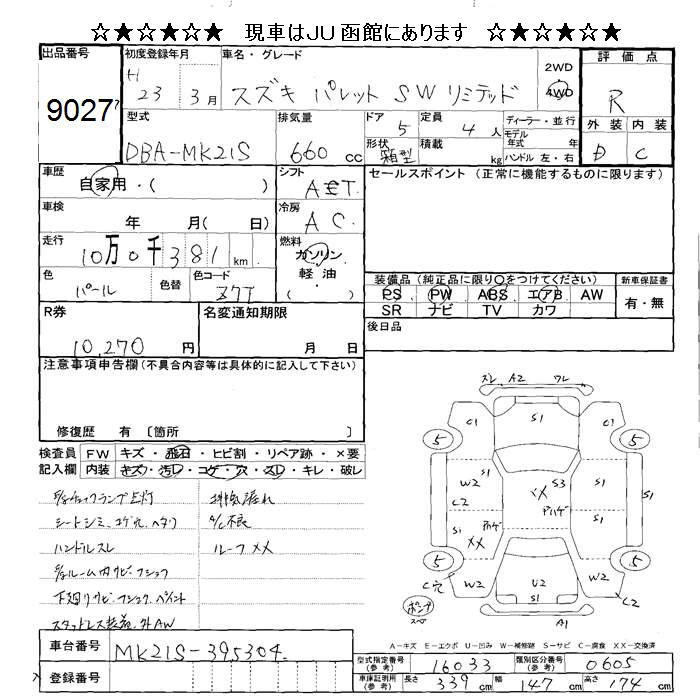 ☆★☆★☆★ 現車はJU函館にあります ☆★☆★☆★
出品番号 初度登録年月 車名・グレード 2WD 評価点
9027 H 23 3月 スズキ パレット SW リミテッド 4WD R
型式 排気量 ドア 定員 ディーラー・並行 外装 内装
DBA-MK21S 660cc 5 4人 モデル年式 年 D C
形状 箱型 積載 kg ハンドル 左・右
車歴 シフト セールスポイント (正常に機能するものに限ります)
自家用・( ) AET
車検 冷房
年 月( 日) AC
走行 燃料
10万0千381km ガソリン・軽油・( )
色 色替 色コード 装備品 (純正品に限り○をつけてください) 新車保証書
パール Z7T PS PW ABS エアB AW 有・無
SR ナビ TV カワ
R券 名変通知期限 後日品
10,270円 月 日
注意事項申告欄(不具合内容等は具体的に記入して下さい)
修復歴 有 〔箇所 〕
検査員記入欄 FW キズ・飛石・ヒビ割・リペア跡・×要
内装 キズ・汚レ・コゲ・穴・スレ・キレ・破レ
チェックランプ点灯 排気漏れ
シートシミ、コゲ穴、ヘタリ A/C不良
ハンドルスレ ルーフXX
ルーム内サビ・フショク
下廻りサビ・フショク、ペイント
スタットレス装着、外AW
スレ A2 ワレ
C1 S1 C1
5 5
W2 S1 XX S3 S1 S1
C2 アトハゲ
S1 アトハゲ S1
XX
5 5
C穴 W2 U2 W2 C2
S1
ポンプ スペ A1
A-キズ E-エクボ U-凹み W-補修跡 S-サビ C-腐食 XX-交換済
車台番号 MK21S-395304 型式指定番号(参考) 16033 類別区分番号(参考) 0605
登録番号 車庫証明用(参考) 長さ 339cm 幅 147cm 高さ 174cm